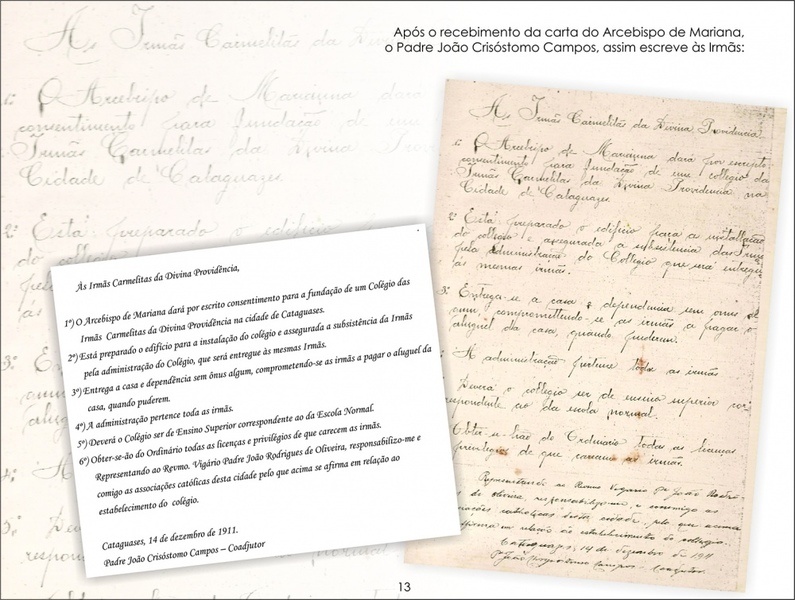 Após o recebimento da carta do Arcebispo de Mariana,
o Padre João Crisóstomo Campos, assim escreve às Irmãs:
As Irmãs Carmelitas da Divina Providencia
1º O Arcebispo de Marianna dará por escripto
consentimento para fundação de um collegio da
Irmãs Carmelitas da Divina Providencia na
Cidade de Cataguazes.
2º Está preparado o edificio para a installação
do collegio e assegurada a subsistencia das Irmãs
pela administração do Collegio que será entregue
ás mesmas irmãs.
3º Entrega-se a casa e dependencia sem onus al-
gum comprometendo-se as irmãs a pagar o
aluguel da casa, quando puderem.
A administração pertence toda as irmãs
Deverá o collegio ser de ensino superior cor-
respondente ao da escola normal.
Obter-se-hão do Ordinario todas as licenças
privilegios de que careçam as irmãs.
Representando ao Revmo Vigario Pe João Rodri-
de Oliveira, responsabilizo-me e commigo as
catholicas desta cidade, pelo que acima
affirma em relação ao estabelecimento do collegio.
Cataguazes, 14 de Dezembro de 1911
Campos - Coadjutor
Às Irmãs Carmelitas da Divina Providência,
1º) O Arcebispo de Mariana dará por escrito consentimento para a fundação de um Colégio das
Irmãs Carmelitas da Divina Providência na cidade de Cataguases.
2º) Está preparado o edifício para a instalação do colégio e assegurada a subsistência da Irmãs
pela administração do Colégio, que será entregue às mesmas Irmãs.
3º) Entrega a casa e dependência sem ônus algum, comprometendo-se as irmãs a pagar o aluguel da
casa, quando puderem.
4º) A administração pertence toda as irmãs.
5º) Deverá o Colégio ser de Ensino Superior correspondente ao da Escola Normal.
6º) Obter-se-ão do Ordinário todas as licenças e privilégios de que carecem as irmãs.
Representando ao Revmo. Vigário Padre João Rodrigues de Oliveira, responsabilizo-me e
comigo as associações católicas desta cidade pelo que acima se afirma em relação ao
estabelecimento do colégio.
Cataguases, 14 de dezembro de 1911.
Padre João Crisóstomo Campos – Coadjutor
13